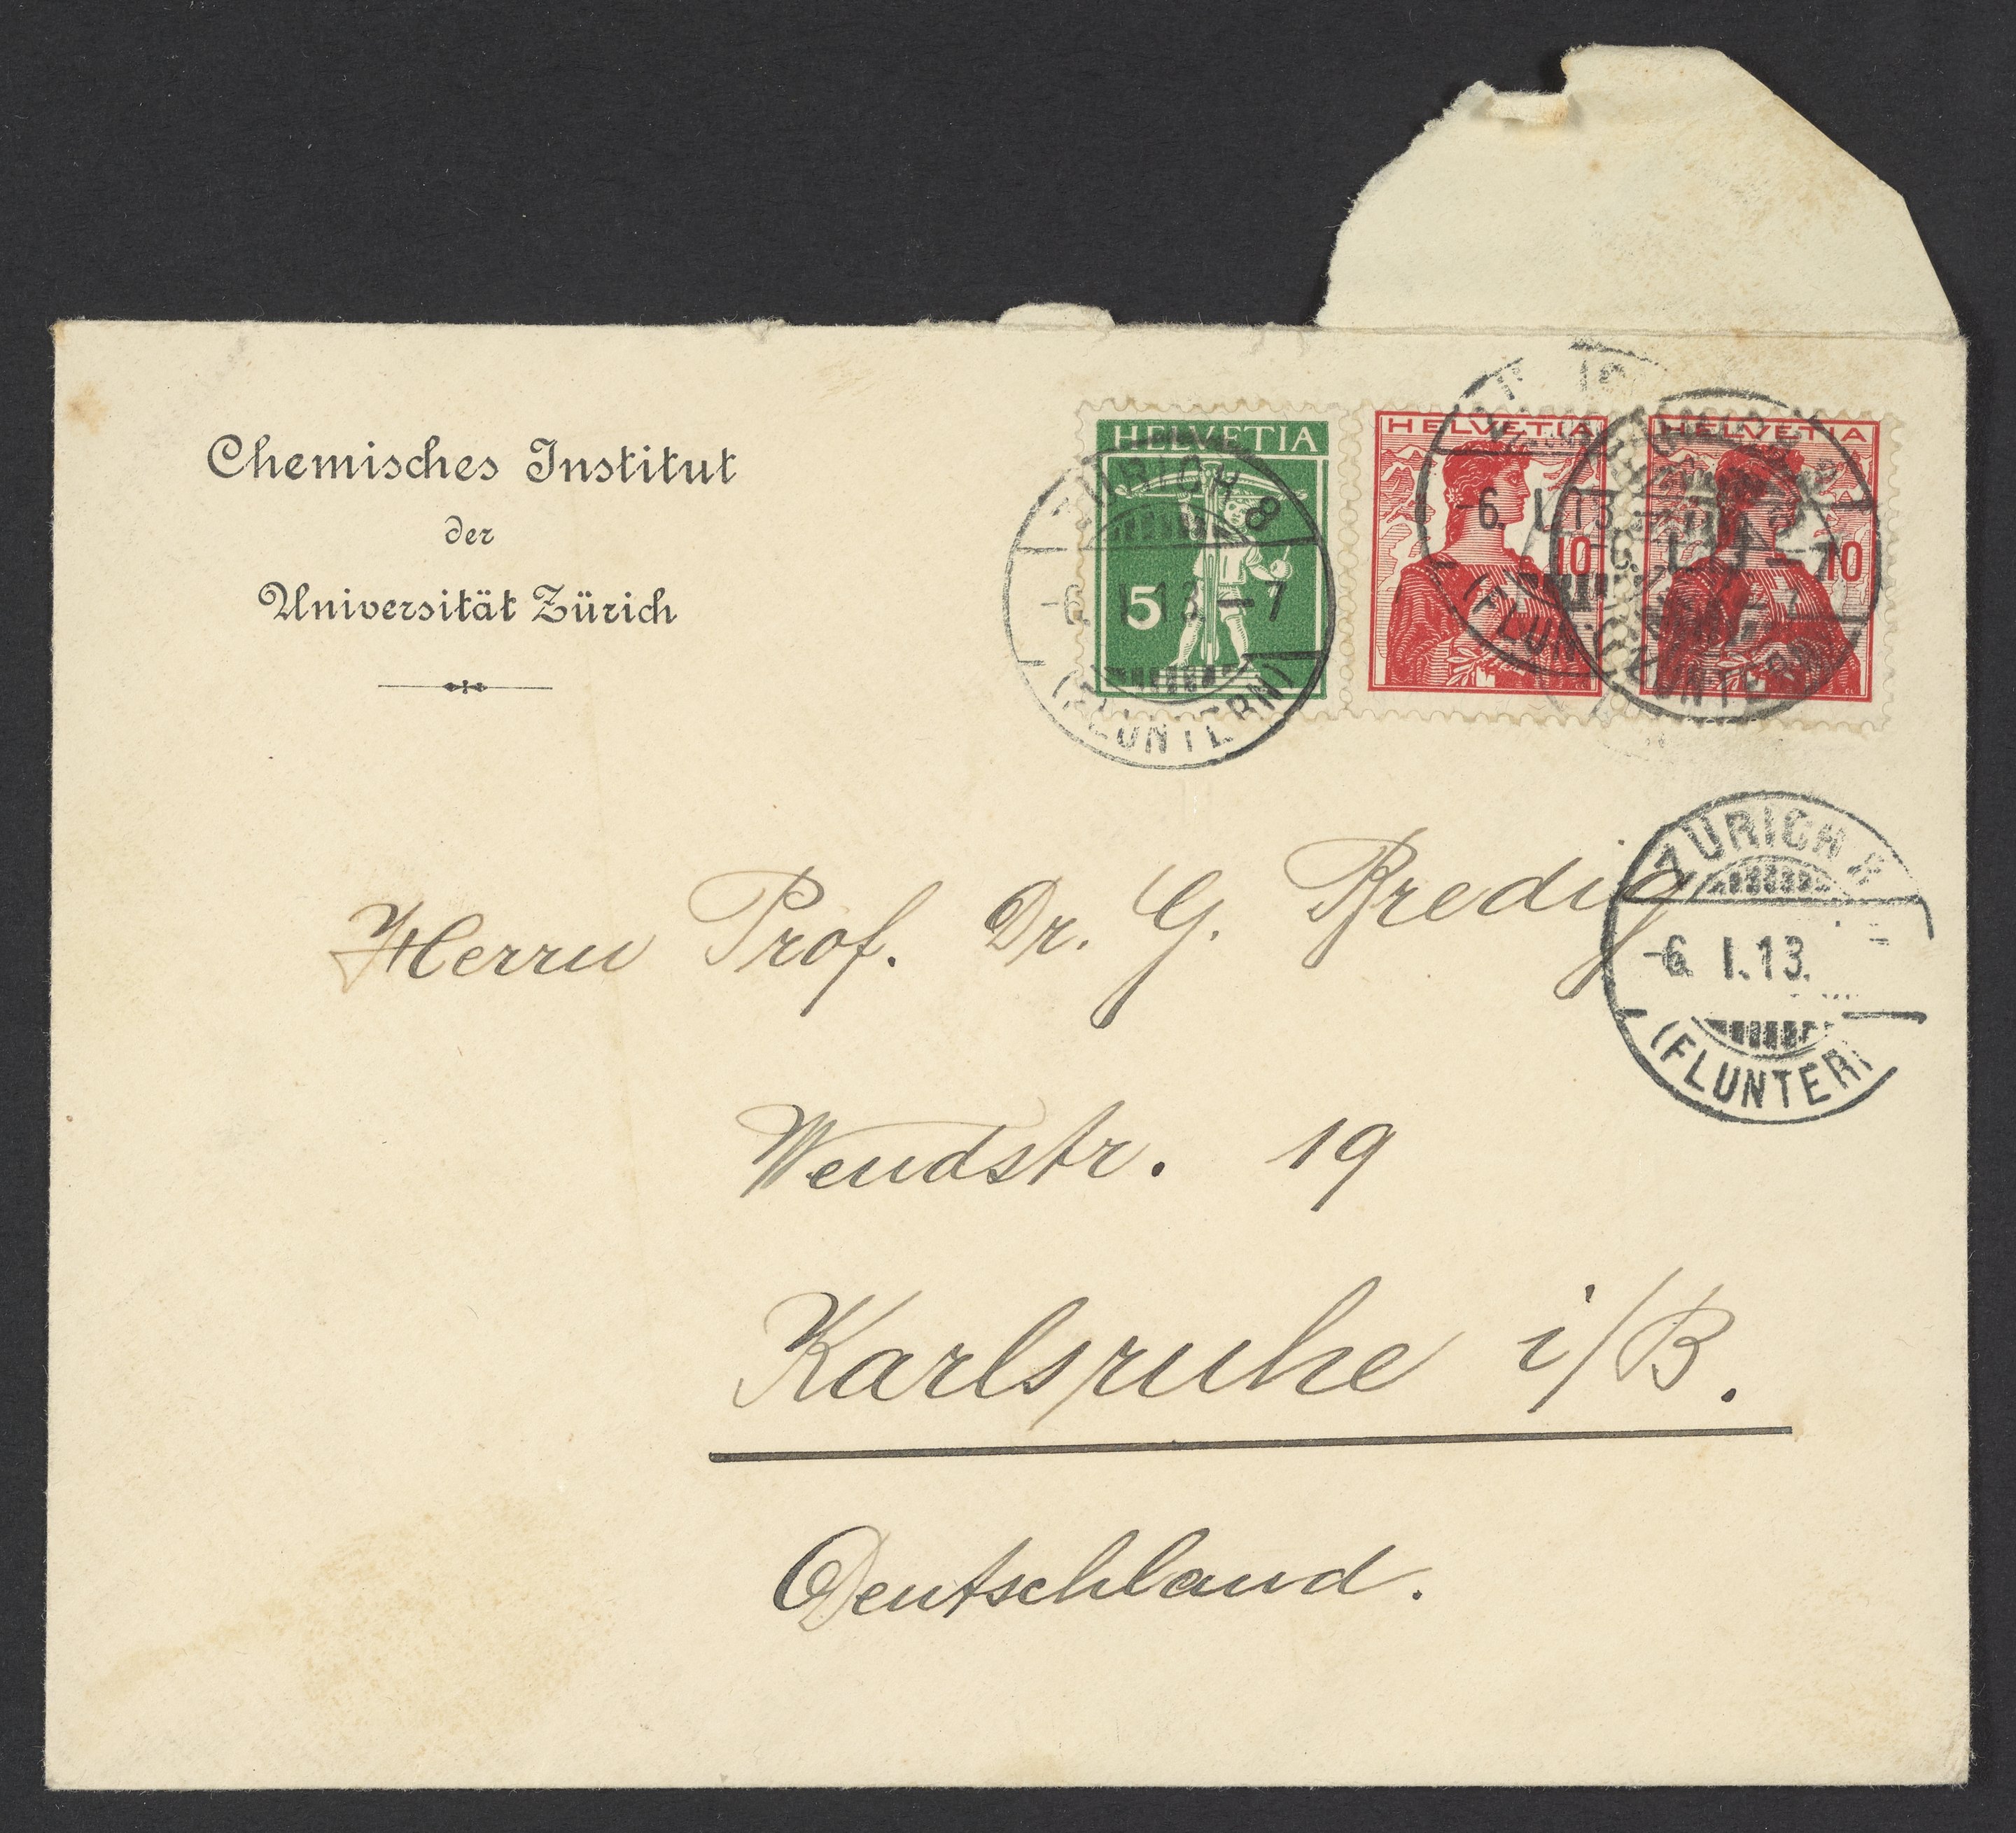 Chemisches Institut
der
Universität Zürich
HELVETIA
5
HELVETIA
10
HELVETIA
10
ZÜRICH 8
-6. I. 13.-7
(FLUNTERN)
-6. I. 13
(FLUN
(FLUNTERN
ZÜRICH 8
-6. I. 13.
(FLUNTER
Herrn Prof. Dr. G. Bredig
Wendstr. 19
Karlsruhe i/B.
Deutschland.